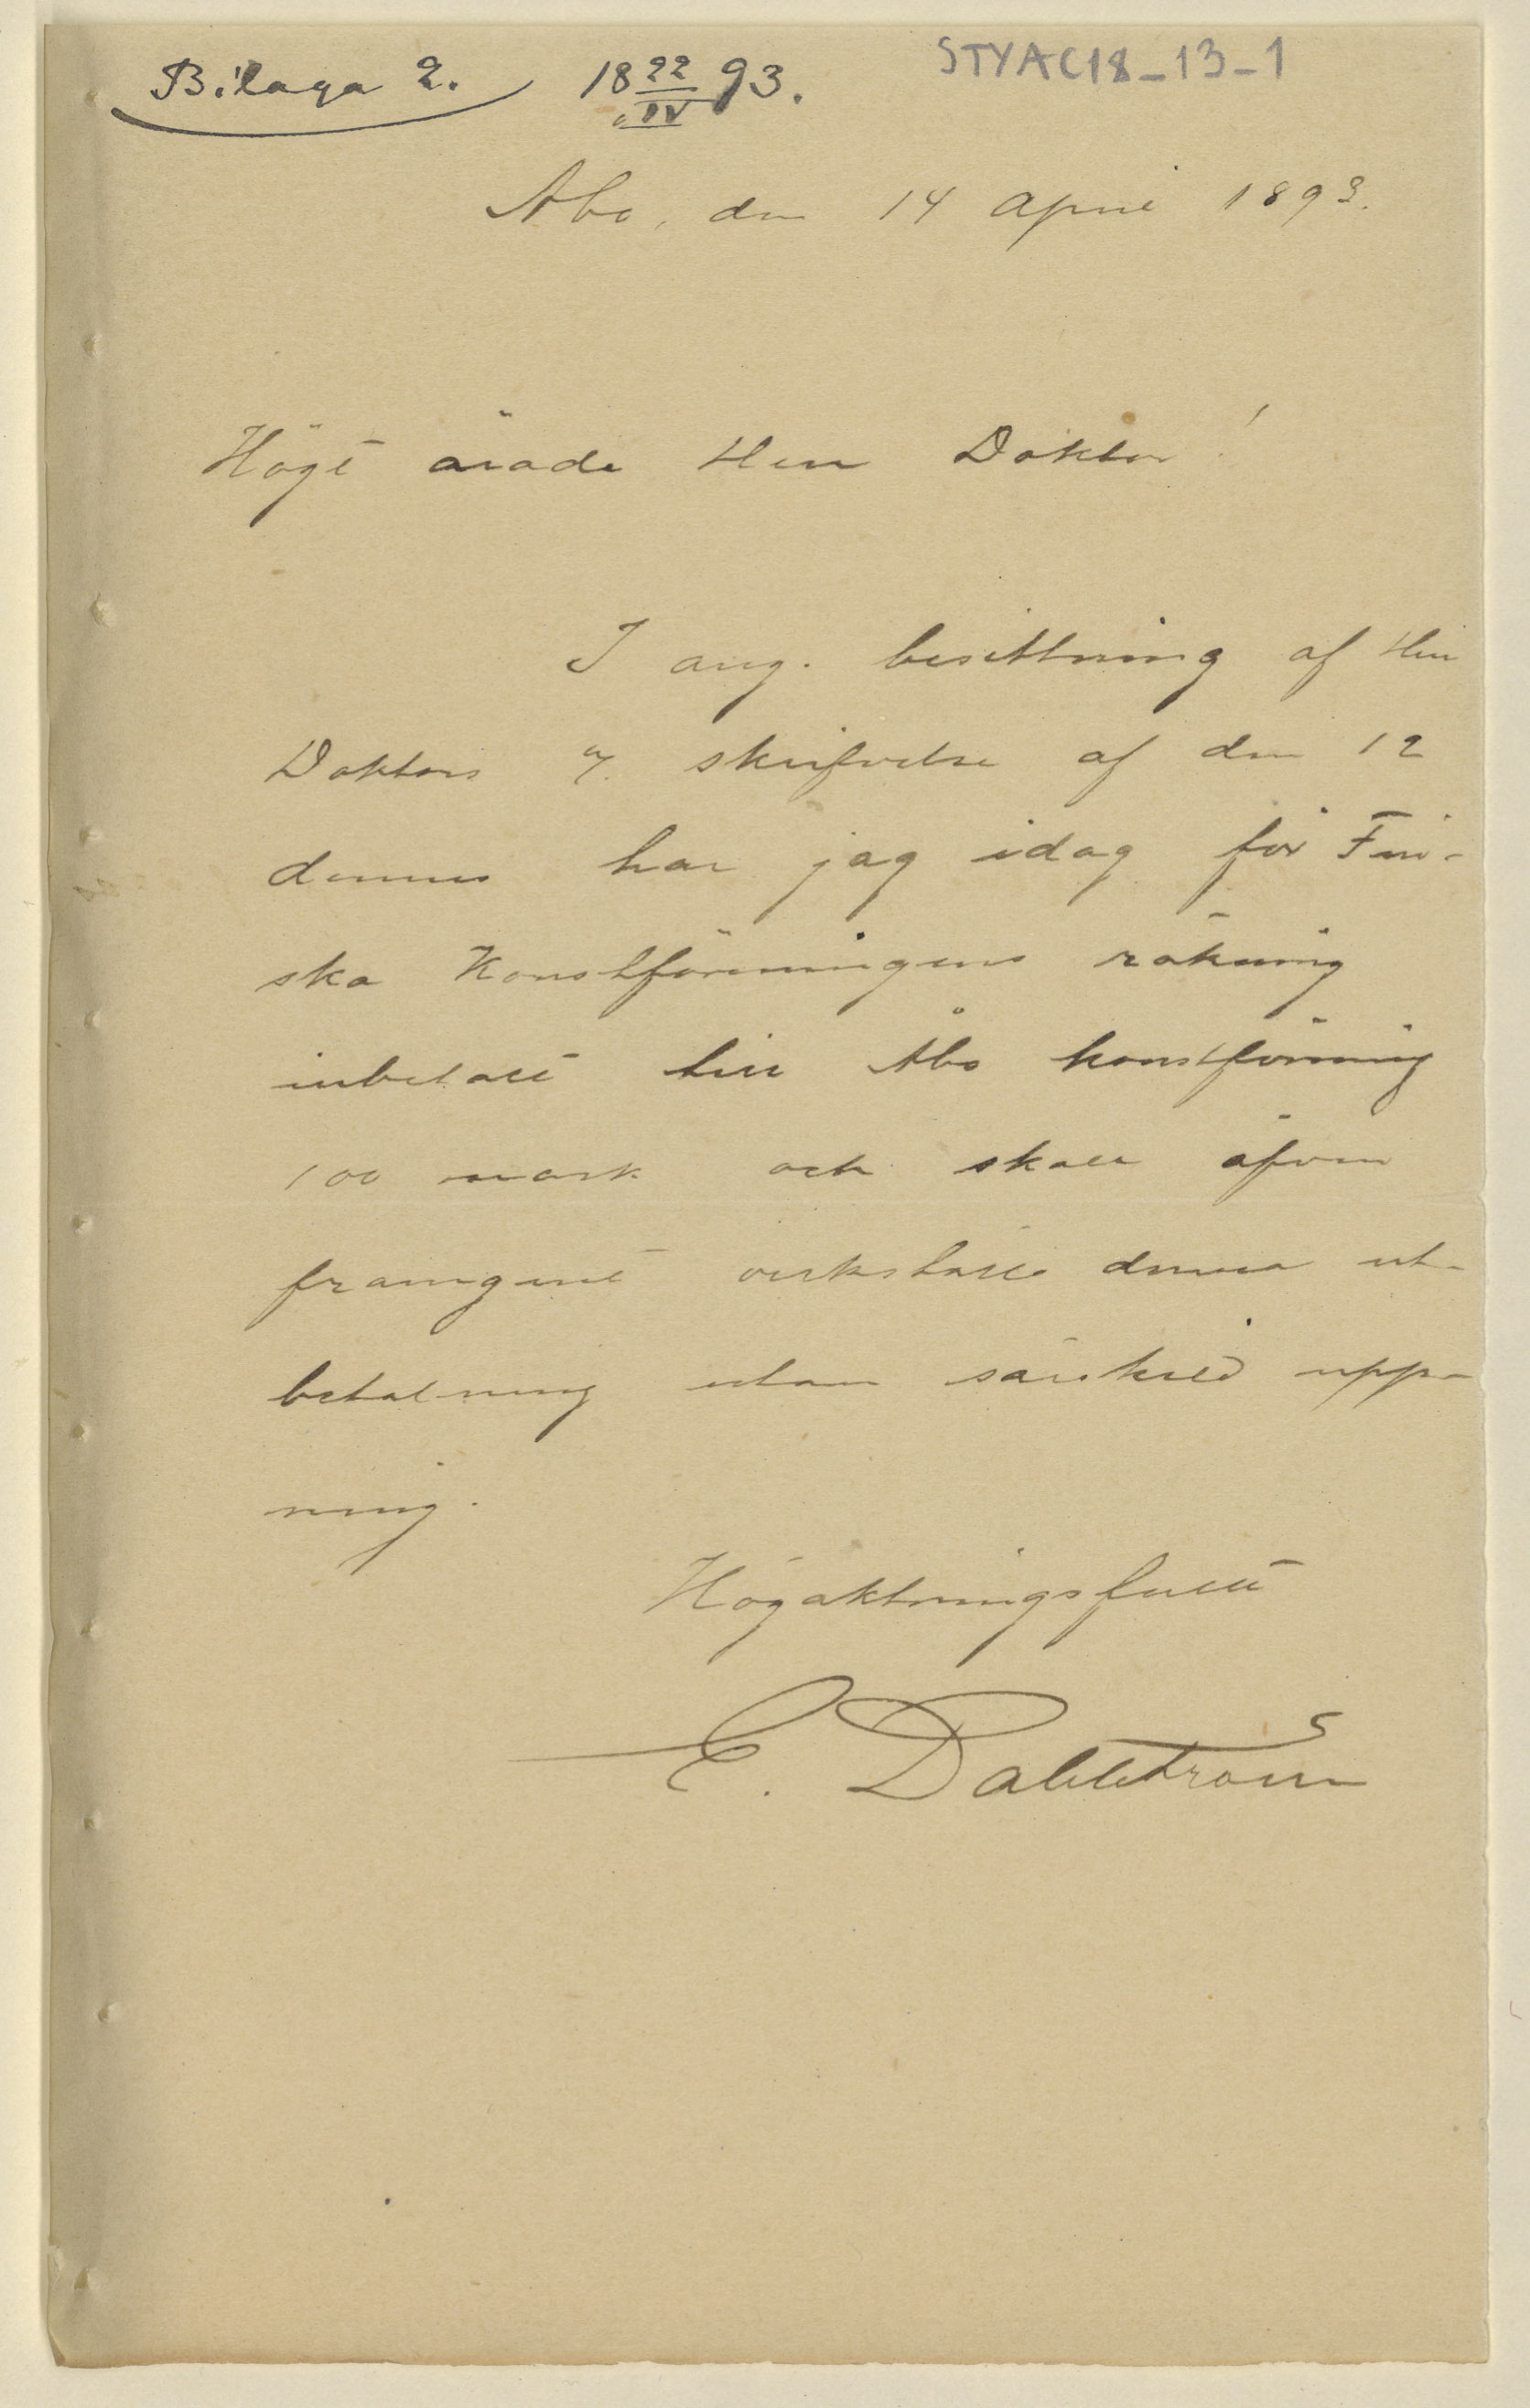 Bilaga 2. 18 22/IV 93. STYAC18_13_1
Åbo, den 14 April 1893.
Högt ärade Herr Doktor!
I ang. besittning af Herr
Doktors skrifvelse af den 12
dennes har jag idag för Fin-
ska Konstföreningens räkning
inbetalt till Åbo konstförening
100 mark och skall äfven
framgent verkställa denna ut-
betalning utan särskild uppa-
ning.
Högaktningsfullt
E. Dahlström